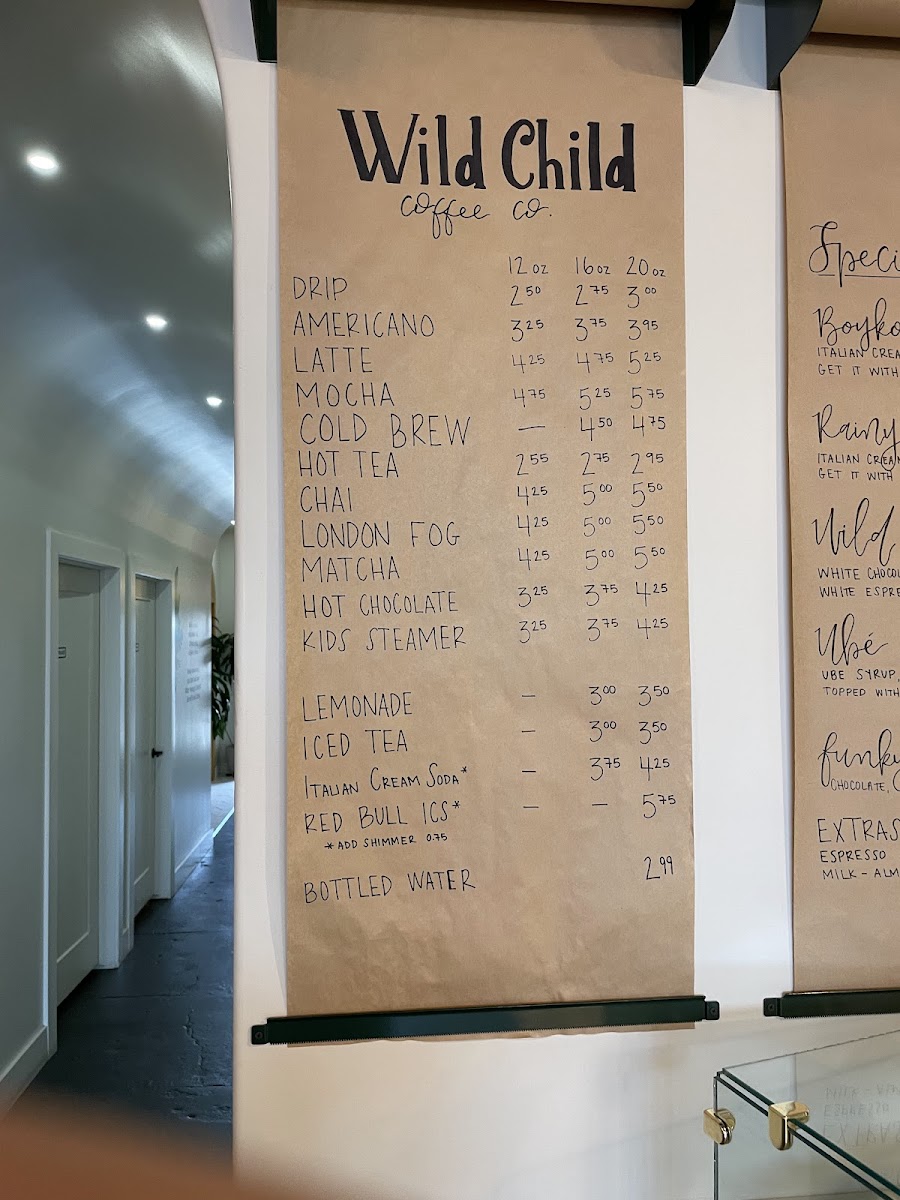 Wild Child
coffee co.
12 oz 16 oz 20 oz
DRIP 2 50 2 75 3 00
AMERICANO 3 25 3 75 3 95
LATTE 4 25 4 75 5 25
MOCHA 4 75 5 25 5 75
COLD BREW — 4 50 4 75
HOT TEA 2 55 2 75 2 95
CHAI 4 25 5 00 5 50
LONDON FOG 4 25 5 00 5 50
MATCHA 4 25 5 00 5 50
HOT CHOCOLATE 3 25 3 75 4 25
KIDS STEAMER 3 25 3 75 4 25
LEMONADE — 3 00 3 50
ICED TEA — 3 00 3 50
ITALIAN CREAM SODA* — 3 75 4 25
RED BULL ICS* — — 5 75
*ADD SHIMMER 0.75
BOTTLED WATER 2 99
Speci
Boyko
ITALIAN CREA
GET IT WITH
Rainy
ITALIAN CREA
GET IT WITH
Wild
WHITE CHOCOL
WHITE ESPRE
Ubé
UBE SYRUP,
TOPPED WITH
funky
CHOCOLATE,
EXTRAS
ESPRESSO
MILK - ALM